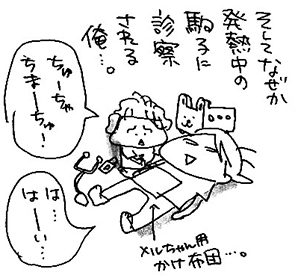 そしてなぜか
発熱中の
駒子に
診察
される
俺…。
ちゅーちゃ
ちまーちゅ!
…
は…
はーい…
メルちゃん用
かけ布団…。